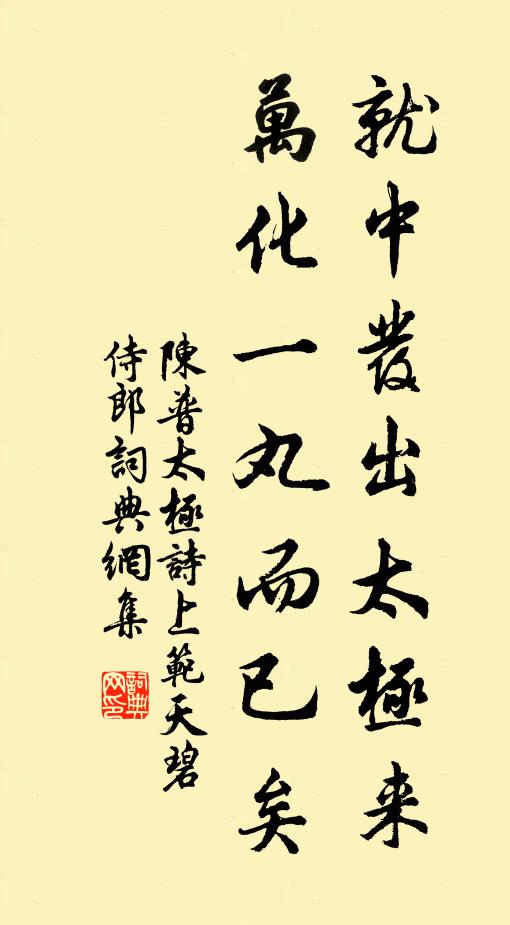 就中發出太極来
萬化一丸而已矣
陳普太極詩上範天碧
侍郎詞典網集
詞典網印